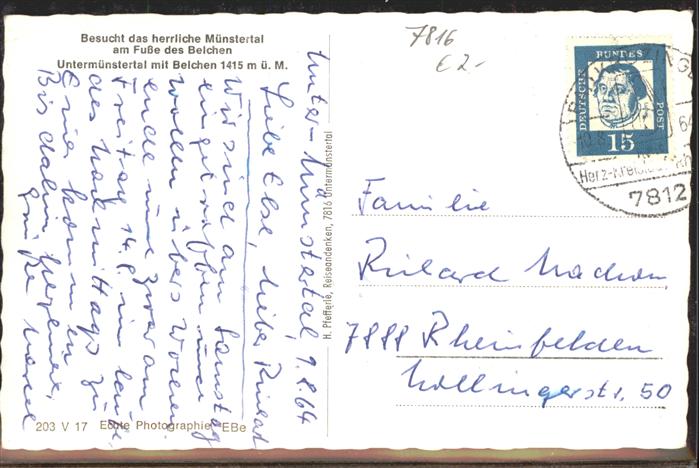 Besucht das herrliche Münstertal
am Fuße des Belchen
Untermünstertal mit Belchen 1415 m ü. M.
7816
€ 2.-
DEUTSCHE
BUNDES
POST
15
64
Herz-Kreislauf
7812
Unter-Münstertal, 9.8.64
Liebe Else, lieber Richard
wir sind am Samstag
eingetroffen und
wollen übers Wochen
ende und zwar am
Freitag 14.8. im Laufe
des Nachmittags zu
Euch kommen
Bis dahin
Grüße
H. Pfefferle, Reiseandenken, 7816 Untermünstertal
Familie
Richard
7888 Rheinfelden
Nollingerstr. 50
203 V 17 Echte Photographie EBe